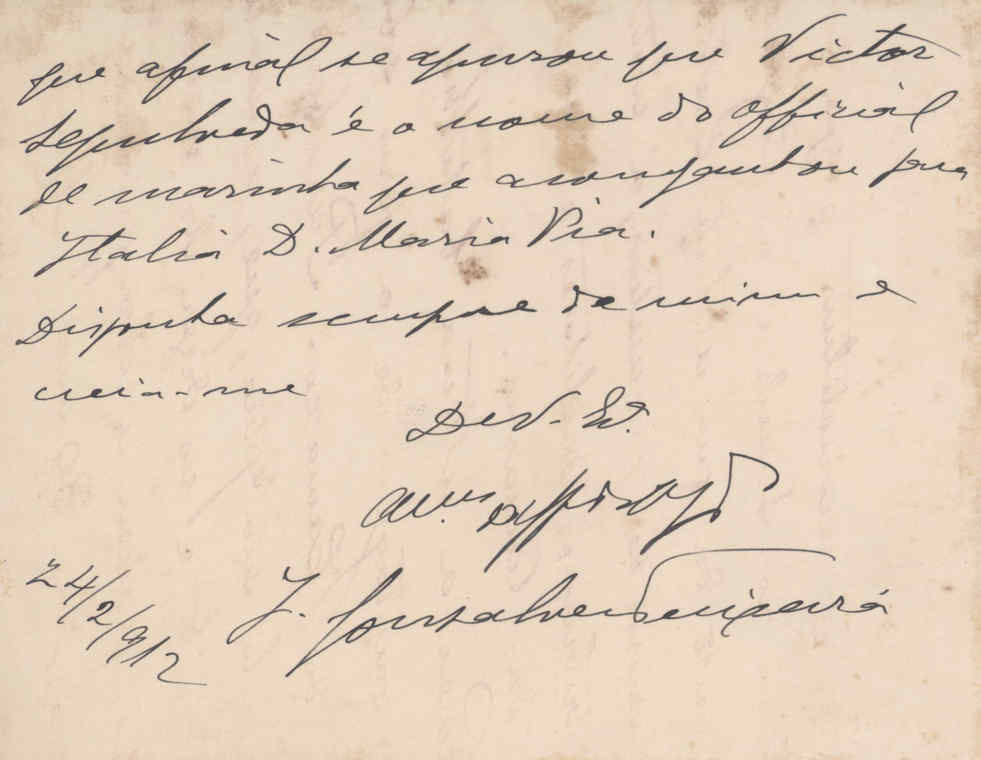 que afinal se apurou que Victor
Sepulveda é o nome do official
de marinha que acompanhou para
Italia D. Maria Pia.
Disponha sempre de mim e
creia-me
De V. Ex.
Am.º
J. Gonsalves Teixeira
24/2/912